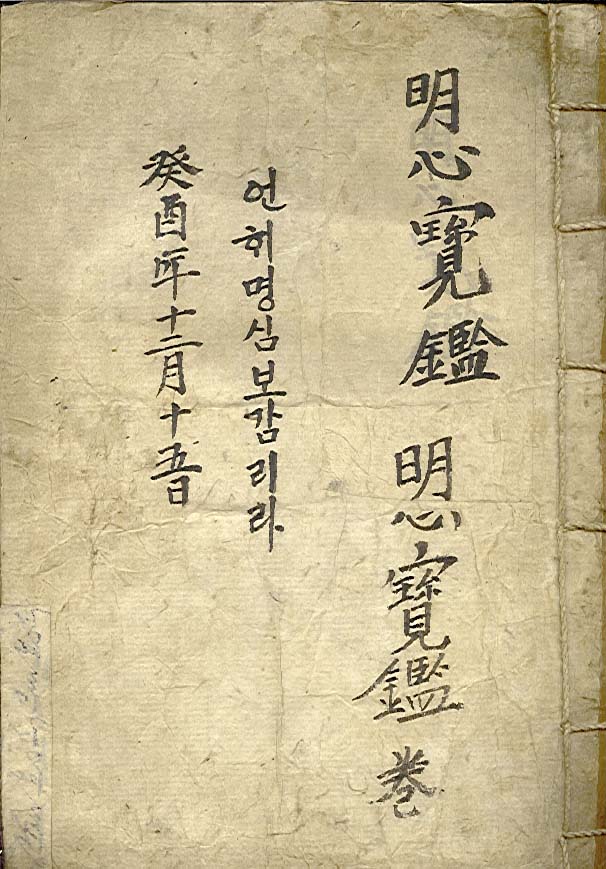 明心寶鑑 明心寶鑑 卷
언히명심보감리라
癸酉年十二月十五日